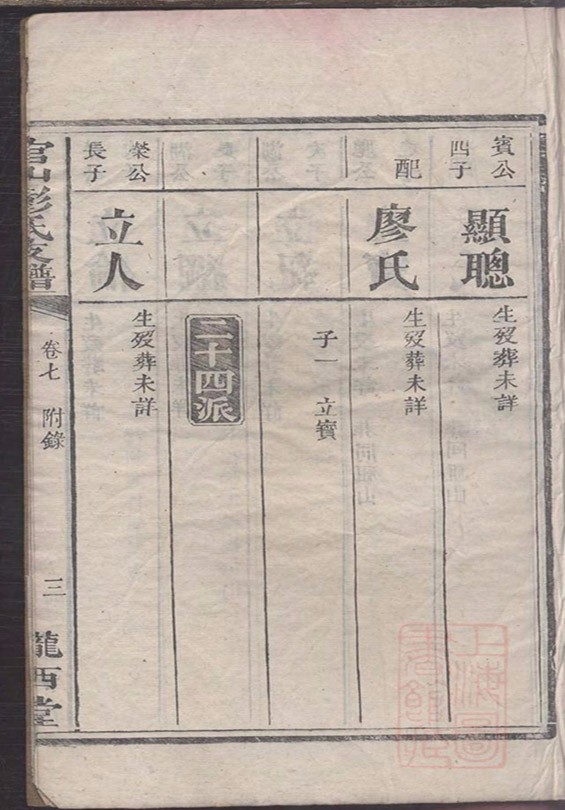 賓公
四子
顯聰
生歿葬未詳
配
廖氏
生歿葬未詳
子一 立寶
二十四派
榮公
長子
立人
生歿葬未詳
官山彭氏支譜
卷七 附錄
三
隴西堂
上海圖書館藏